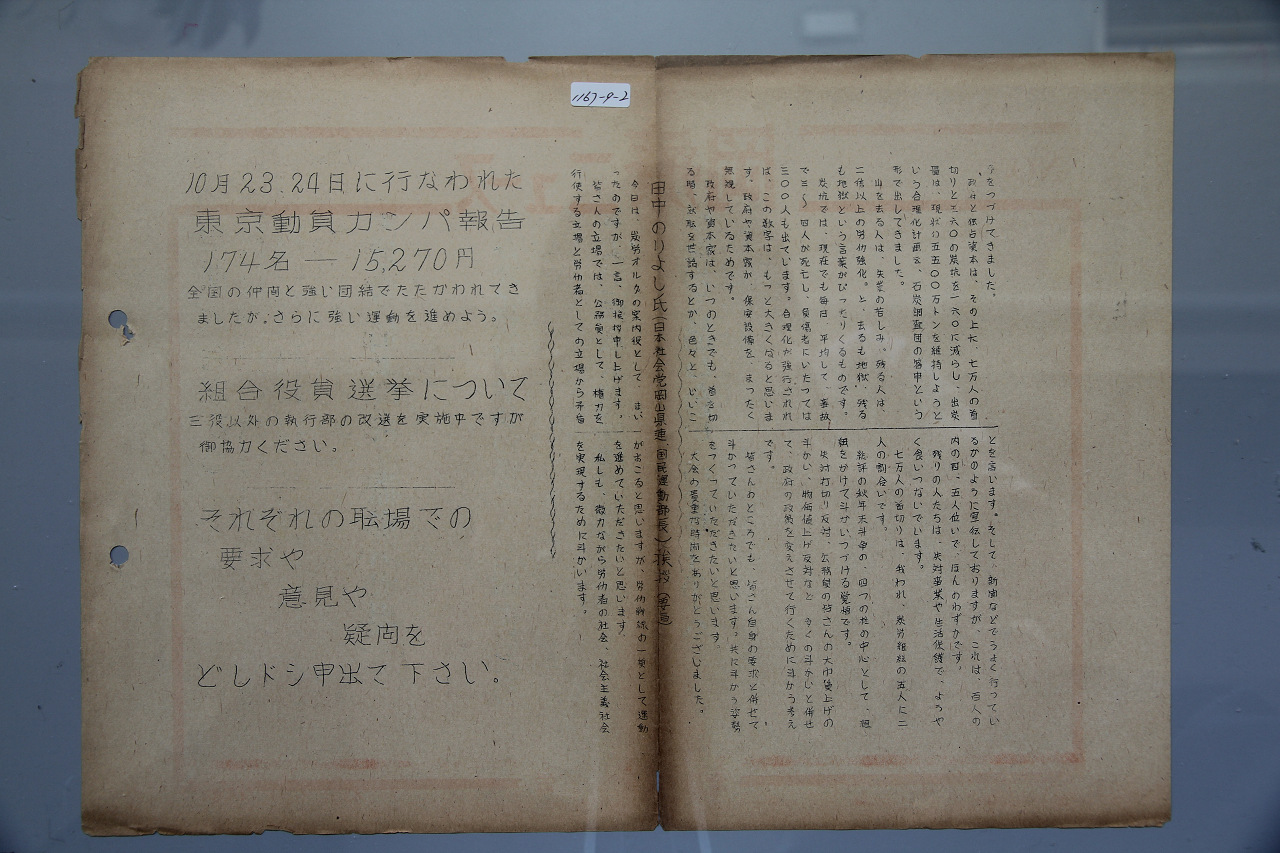 1167-9-2
をつづけてきました。
政府と独占資本は、その上に、七万人の首
切りと三六〇の炭坑を一六〇に減らし、出炭
量は、現状の五五〇〇万トンを維持しようと
いう合理化計画を、石炭調査団の答申という
形で出してきました。
山を去る人は、失業の苦しみ、残る人は、
二倍以上の労仂強化。と、去るも地獄、残る
も地獄という言葉がぴったりくるものです。
炭坑では、現在でも毎日、平均して、事故
で三～四人が死亡し、負傷者にいたっては
三〇〇人も出ています。合理化が強行されれ
ば、この数字は、もっと大きくなると思いま
す。政府や資本家が、保安設備を、まったく
無視しているためです。
政府や資本家は、いつのときでも、首を切
る時、就職を世話するとか、色々と、いいこ
とを言います。そして、新聞などでうまく行ってい
るかのように宣伝しておりますが、これは、百人の
内の四、五人位いで、ほんのわずかです。
残りの人たちは、失対事業や生活保護で、ようや
く食いつないでいます。
七万人の首切りは、我われ、炭労組織の五人に二
人の割合いです。
総評の秋年末斗争の、四つの柱の中心として、組
織をかけて斗かいつづける覚悟です。
失対打切り反対、公務員の皆さんの大巾賃上げの
斗かい、物価値上げ反対など、多くの斗かいと併せ
て、政府の政策を変えさせて行くために斗かう考え
です。
皆さんのところでも、皆さん自身の要求と併せて
斗かっていただきたいと思います。共に斗かう姿勢
をつくっていただきたいと思います。
大会の貴重な時間をありがとうございました。
田中のりよし氏(日本社会党岡山県連 国民運動部長)挨拶(要旨)
今日は、炭労オルグの案内役として、まい
ったのですが、一言、御挨拶申し上げます。
皆さんの立場では、公務員として、権力を
行使する立場と労仂者としての立場から矛盾
がおこると思いますが、労仂戦線の一翼として運動
を進めていただきたいと思います。
私しも、微力ながら労仂者の社会、社会主義社会
を実現するために斗かいます。
10月23.24日に行なわれた
東京動員カンパ報告
174名 ― 15,270円
全国の仲间と強い団結でたたかわれてき
ましたが、さらに強い運動を進めよう。
組合役員選挙について
三役以外の執行部の改選を実施中ですが
御協力ください。
それぞれの職場での
要求や
意見や
疑问を
どしドシ申出て下さい。